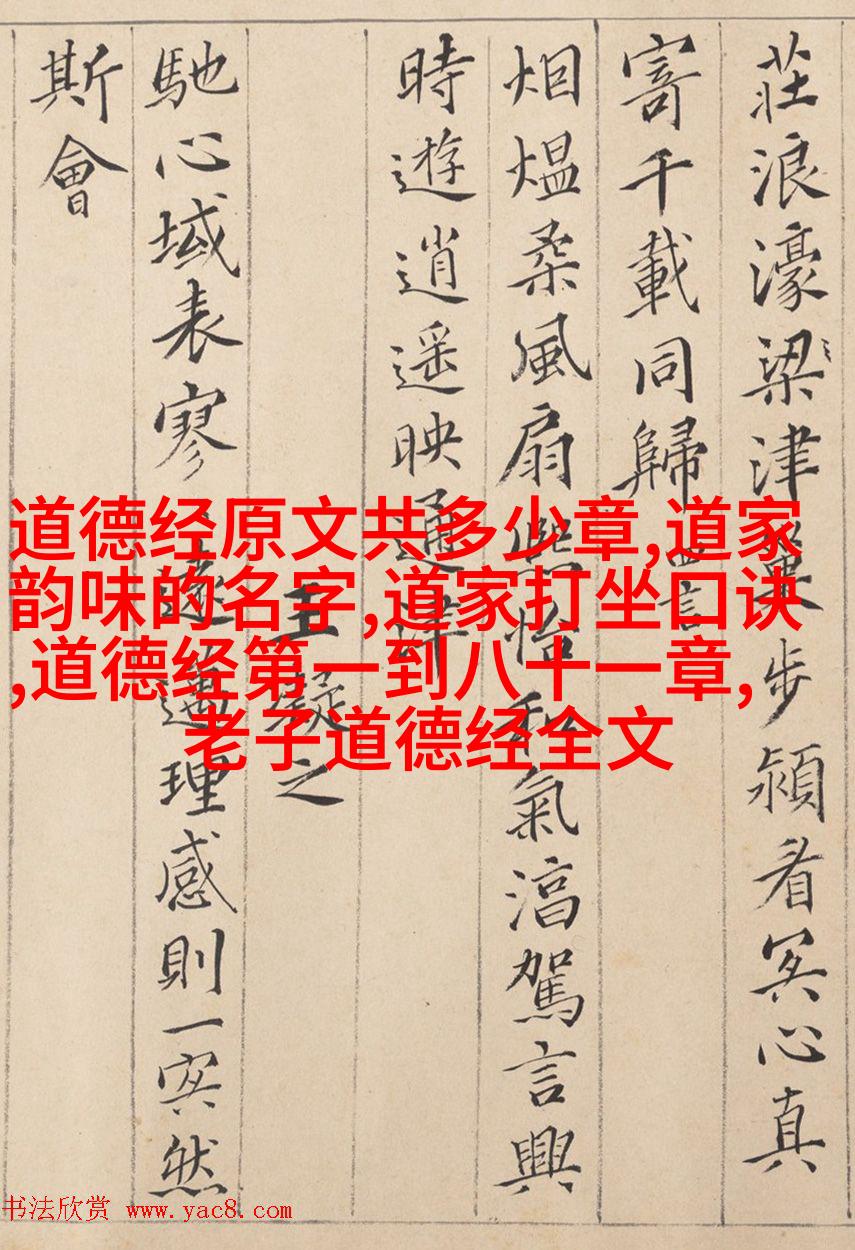 莊浪濠梁津步潁眉冥心真
寄千載同歸 四言
烟熅柔風扇熙怡和氣淳駕言興
時遊逍遥映通津
王凝之
馳心域表寥〻遠邁理感則一冥然
斯會
道德经原文共多少章,道家
韵味的名字,道家打坐口诀
,道德经第一到八十一章,
老子道德经全文
书法欣赏 www.yac8.com